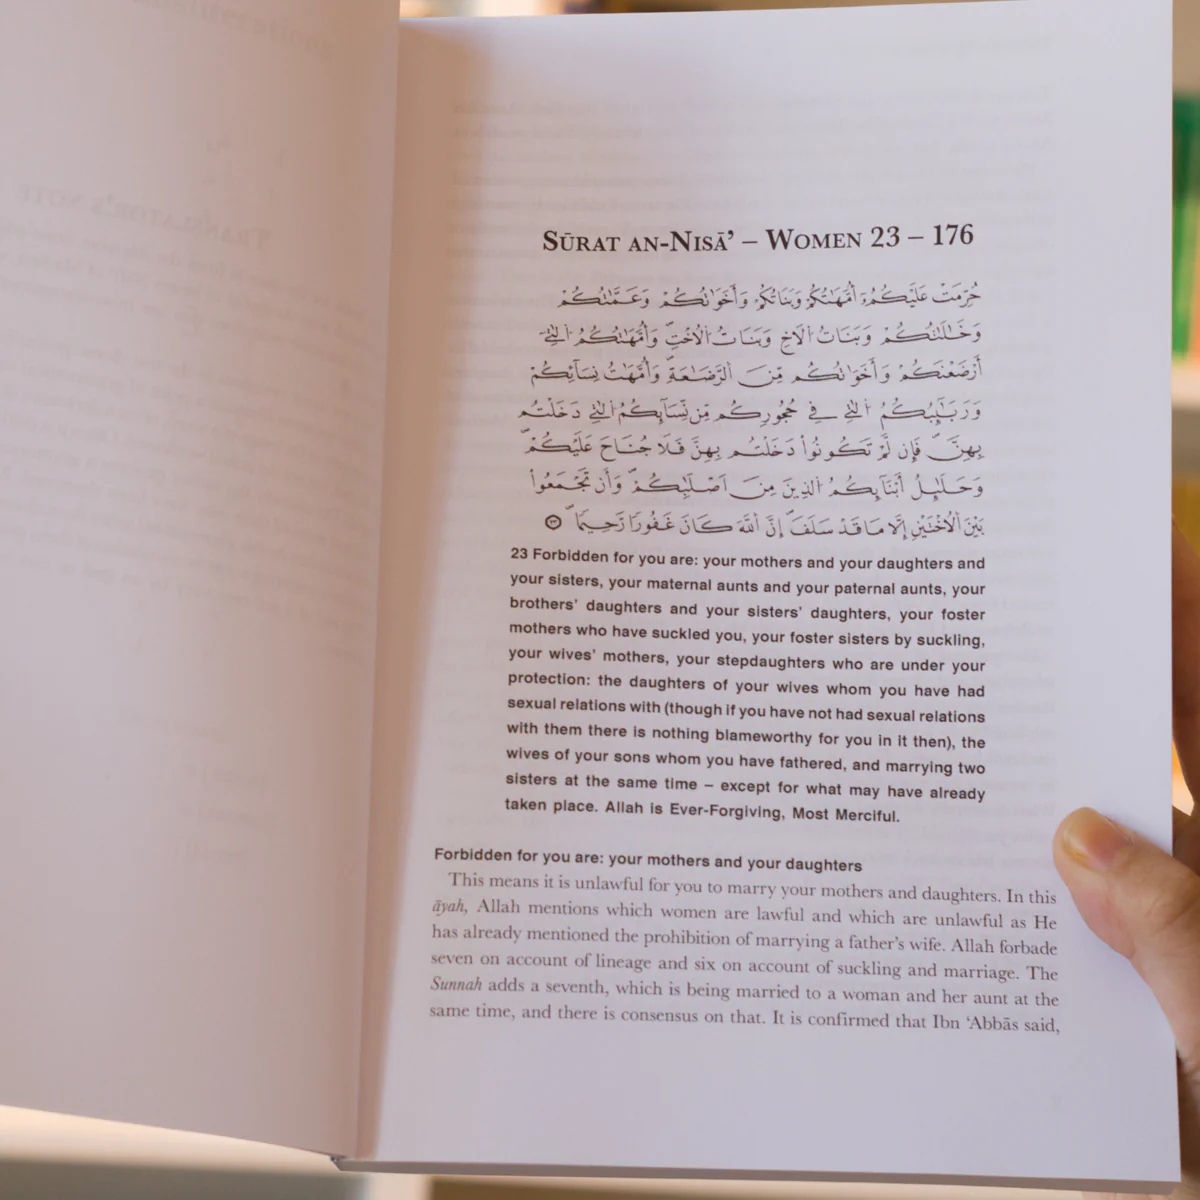 TRANSLATOR'S NOTE
SŪRAT AN-NISĀ’ – WOMEN 23 – 176
حُرِّمَتْ عَلَيْكُمُۥٓ أُمَّهَٰتُكُمْ وَبَنَاتُكُمْ وَأَخَوَٰتُكُمْ وَعَمَّٰتُكُمْ
وَخَٰلَٰتُكُمْ وَبَنَاتُ اُلَاخِ وَبَنَاتُ اُلُاخْتِ وَأُمَّهَٰتُكُمُ اُلتِے
أَرْضَعْنَكُمْ وَأَخَوَٰتُكُم مِّنَ اَلرَّضَٰعَةِ وَأُمَّهَٰتُ نِسَآئِكُمْ
وَرَبَٰٓئِبُكُمُ اُلتِے فِے حُجُورِكُم مِّن نِّسَآئِكُمُ اُلتِے دَخَلْتُم
بِهِنَّ فَإِن لَّمْ تَكُونُواْ دَخَلْتُم بِهِنَّ فَلَا جُنَاحَ عَلَيْكُمْ
وَحَلَٰٓئِلُ أَبْنَآئِكُمُ اُلذِينَ مِنَ اَصْلَٰبِكُمْ وَأَن تَجْمَعُواْ
بَيْنَ اَلُاخْتَيْنِ إِلَّا مَا قَدْ سَلَفَ إِنَّ اَللَّهَ كَانَ غَفُورًا رَّحِيمًا ۝٢٣
23 Forbidden for you are: your mothers and your daughters and
your sisters, your maternal aunts and your paternal aunts, your
brothers’ daughters and your sisters’ daughters, your foster
mothers who have suckled you, your foster sisters by suckling,
your wives’ mothers, your stepdaughters who are under your
protection: the daughters of your wives whom you have had
sexual relations with (though if you have not had sexual relations
with them there is nothing blameworthy for you in it then), the
wives of your sons whom you have fathered, and marrying two
sisters at the same time – except for what may have already
taken place. Allah is Ever-Forgiving, Most Merciful.
Forbidden for you are: your mothers and your daughters
This means it is unlawful for you to marry your mothers and daughters. In this
āyah, Allah mentions which women are lawful and which are unlawful as He
has already mentioned the prohibition of marrying a father’s wife. Allah forbade
seven on account of lineage and six on account of suckling and marriage. The
Sunnah adds a seventh, which is being married to a woman and her aunt at the
same time, and there is consensus on that. It is confirmed that Ibn ‘Abbās said,